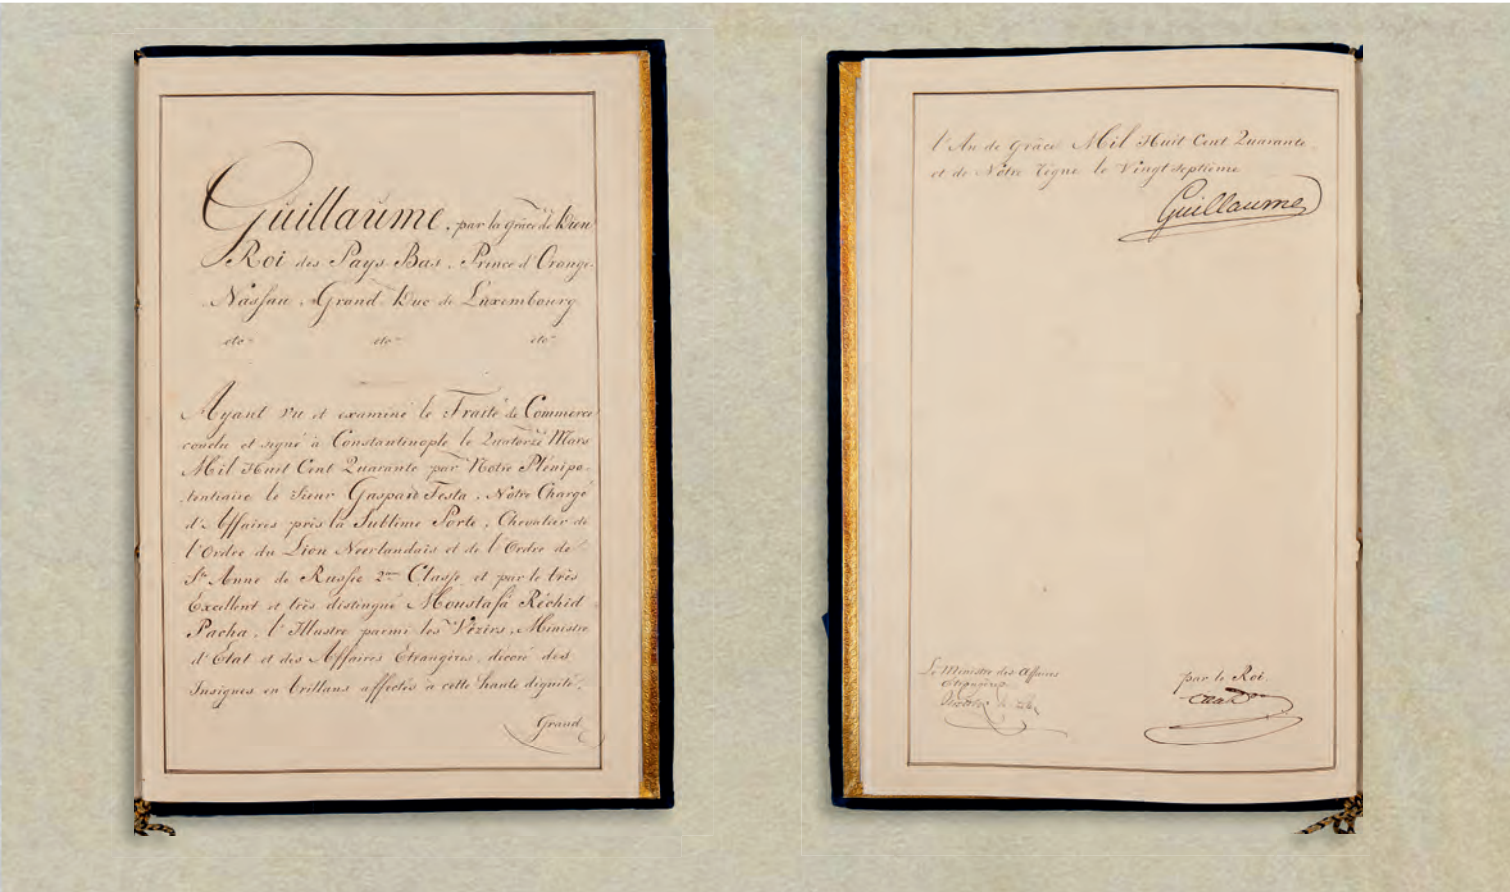 Guillaume, par la grâce de Dieu
Roi des Pays-Bas, Prince d'Orange-
Nassau, Grand Duc de Luxembourg
etc etc etc
Ayant vu et examiné le Traité de Commerce
conclu et signé à Constantinople le Quatorze Mars
Mil Huit Cent Quarante par Notre Plénipo-
tentiaire le Sieur Gaspard Testa, Notre Chargé
d'Affaires près la Sublime Porte, Chevalier de
l'Ordre du Lion Neerlandais et de l'Ordre de
Ste Anne de Russie 2me Classe, et par le très
Excellent et très distingué Moustafa Réchid
Pacha, l'Illustre parmi les Vézirs, Ministre
d'Etat et des Affaires Etrangères, décoré des
Insignes en brillans affectés à cette haute dignité,
Grand
l'An de Grâce Mil Huit Cent Quarante
et de Nôtre Règne le Vingt septième
Guillaume
Le Ministre des Affaires
Etrangères
par le Roi